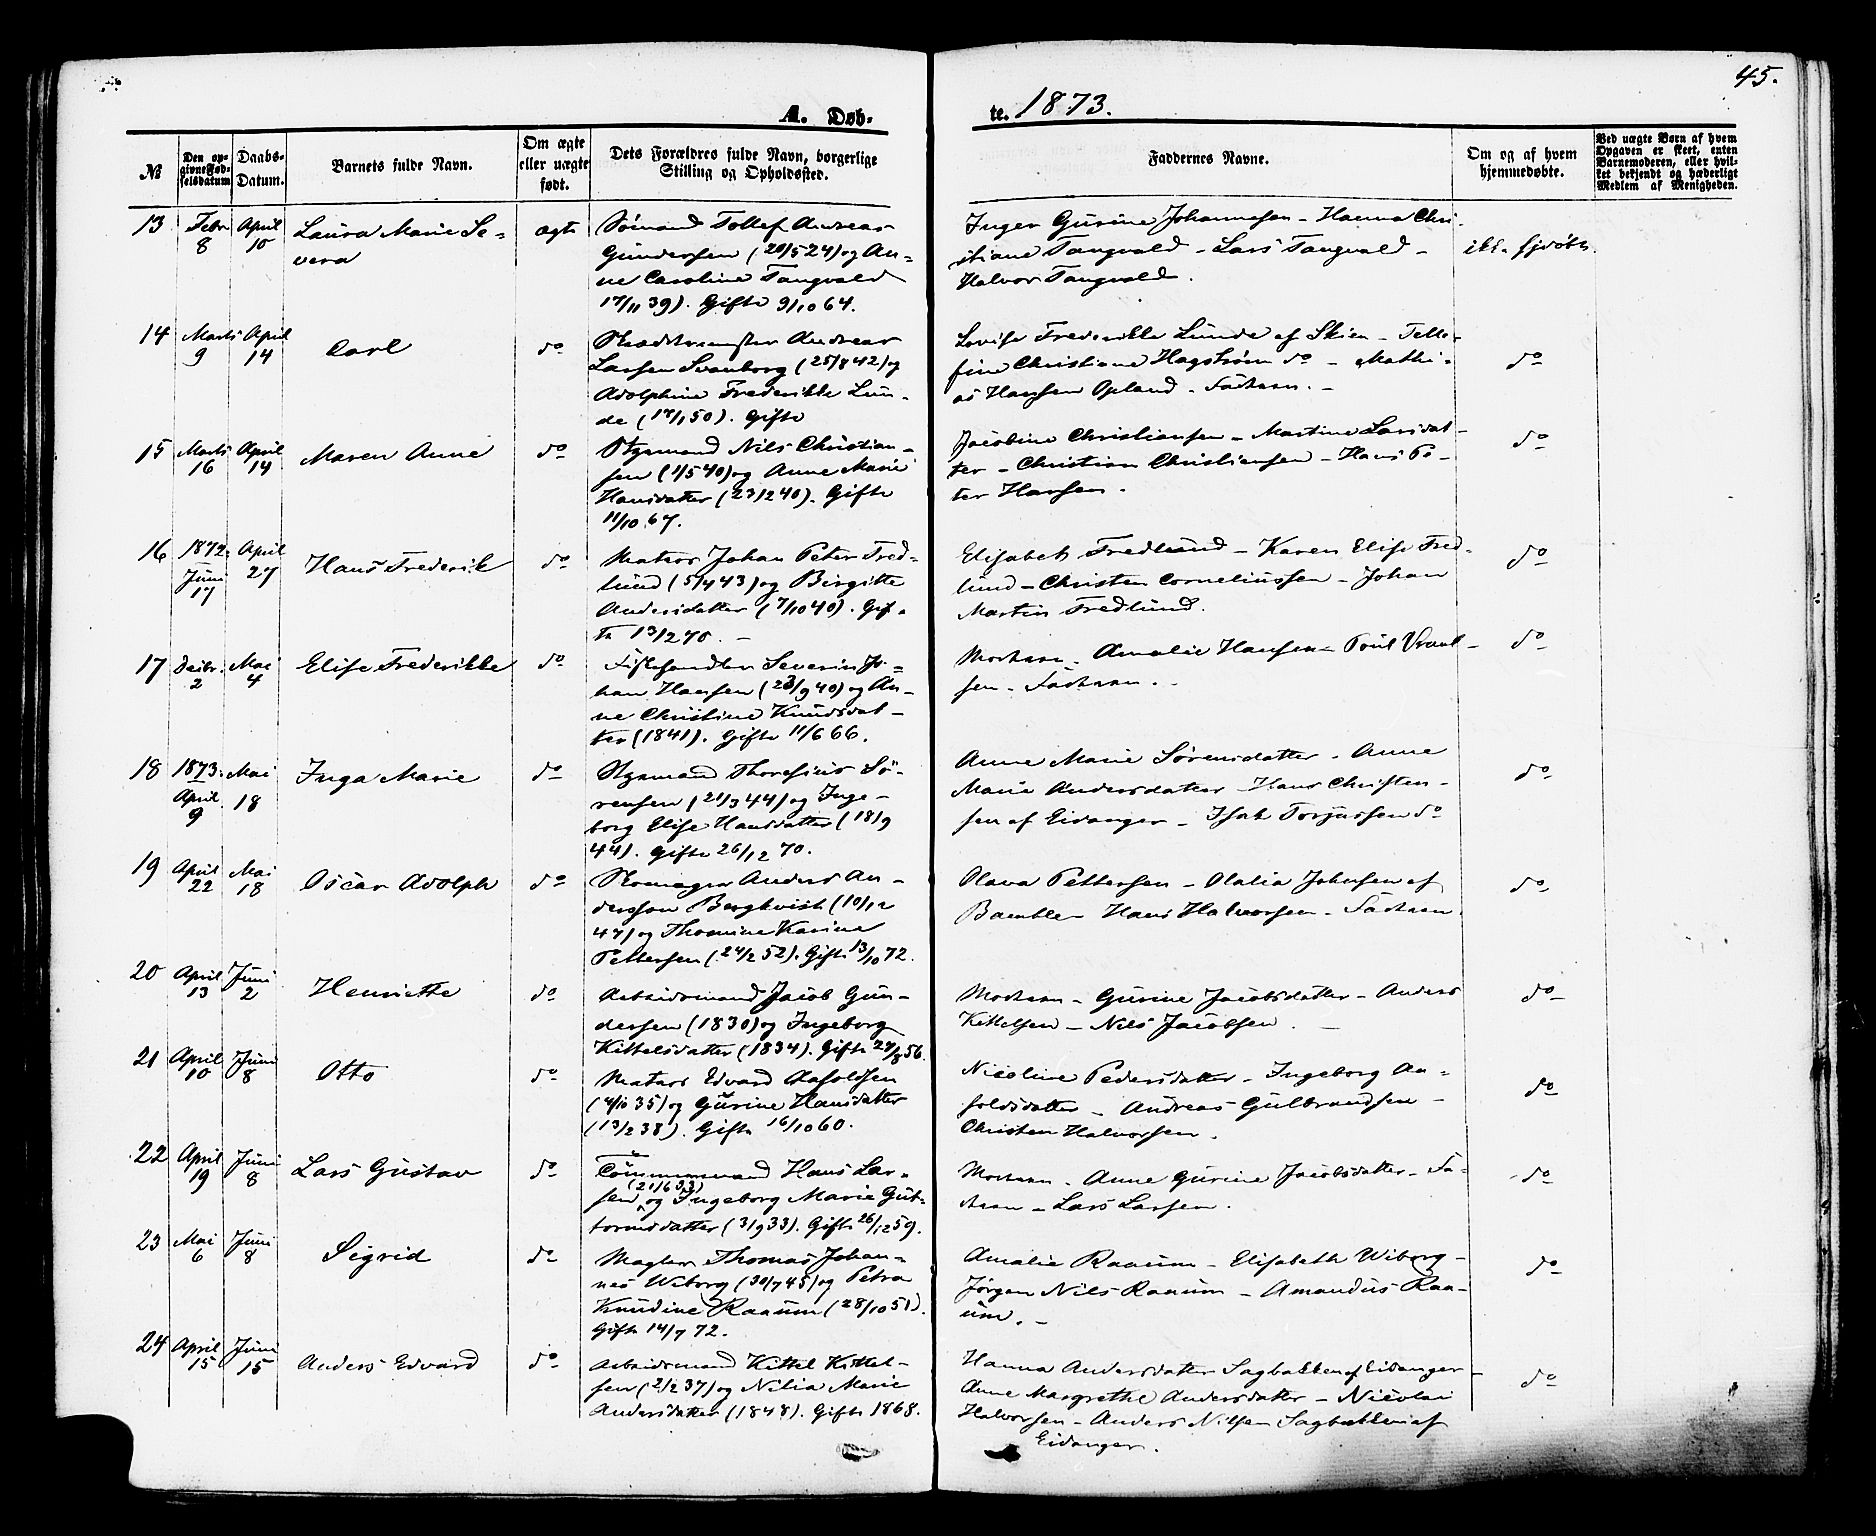 45.
A. Døb-
te. 1873.
№
Den op-
givne Fød-
selsdatum
Daabs-
Datum.
Barnets fulde Navn.
Om ægte
eller uægte
født.
Dets Forældres fulde Navn, borgerlige
Stilling og Opholdssted.
Faddernes Navne.
Om og af hvem
hjemmedøbte.
Ved uægte Børn af hvem
Opgaven er skeet, enten
Barnemoderen, eller hvil-
ket bekjendt og hæderligt
Medlem af Menigheden.
13 Febr 8 April 10 Laura Marie Se-
vera
ægte
Sømand Tollef Andreas
Gundersen (20/5 24) og An-
ne Caroline Tangvald
17/11 39). Gifte 9/10 64.
Inger Gurine Johannesen - Hanna Chri-
stiane Tangvald - Lars Tangvald -
Halvor Tangvald.
ikke hjdøbt.
14 Marts 9 April 14 Carl do
Andreas
Larsen Svanborg (25/8 42) og
Adolphine Frederikke Lun-
de (17/1 50). Gifte
Lovise Frederikke Lunde af Skien - Telle-
fine Christiane Hagstrøm do - Mathi-
as Hansen Opland - Faderen. -
do
15 Marts 16 April 14 Maren Anne do
Styrmand Nils Christian-
sen (1/5 40) og Anne Marie
Hansdatter (23/2 40). Gifte
11/10 67.
Jacobine Christiansen - Martine Larsdat-
ter - Christian Christiansen - Hans Pe-
ter Hansen.
do
16 1872. Juni 17 April 27 Hans Frederik do
Matros Johan Peter Fred-
lund (5/4 43) og Birgitte
Andersdatter (7/10 40). Gif-
te 13/2 70. -
Elisabeth Fredlund - Karen Elise Fred-
lund - Christen Corneliussen - Johan
Martin Fredlund.
do
17 Decbr. 2 Mai 4 Elise Frederikke do
Fiskehandler Severin Jo-
han Hansen (23/9 40) og An-
ne Christine Knudsdat-
ter (1841). Gifte 11/6 66.
Moderen - Amalie Hansen - Poul
sen - Faderen. -
do
18 1873. April 9 Mai 18 Inga Marie do
Styrmand Thoresius Sø-
rensen (21/3 44) og Inge-
borg Elise Hansdatter (18/9
44). Gifte 26/12 70.
Anne Marie Sørensdatter - Anne
Maria Andersdatter Hans Christen-
sen af Eidanger - Isak Torjussen do
do
19 April 22 Mai 18 Oscar Adolph do
Skomager Anders An-
dersson Bergkvist (10/12
47) og Thomine Karine
Pettersen (24/2 52). Gifte 13/10 72.
Olava Pettersen - Olalia Johnsen af
Bamble - Hans Halvorsen - Faderen.
do
20 April 13 Juni 2 Henriette do
Arbeidsmand Jacob Gun-
dersen (1830) og Ingeborg
Kittelsdatter (1834). Gifte 27/8 56.
Moderen - Gurine Jacobsdatter - Anders
Kittelsen - Nils Jacobsen. -
do
21 April 10 Juni 8 Otto do
Matros Edvard Aasoldsen
(4/10 35) og Gurine Hansdatter
(13/2 38). Gifte 16/10 60.
Nicoline Pedersdatter - Ingeborg Aa-
soldsdatter - Andreas Gulbrandsen -
Christen Halvorsen.
do
22 April 19 Juni 8 Lars Gustav do
Tømmermand Hans Lar-
(21/6 33)
sen og Ingeborg Marie Gut-
tormsdatter (3/9 33). Gifte 26/12 59.
Moderen - Anne Gurine Jacobsdatter - Fa-
deren - Lars Larsen.
do
23 Mai 6 Juni 8 Sigrid do
Mægler Thomas Johan-
nes Wiborg (30/7 45) og Petra
Knudine Raaum (28/10 51).
Gifte 14/7 72.
Amalie Raaum - Elisabeth Wiborg -
Jørgen Nils Raaum - Amandus Raa-
um. -
do
24 April 15 Juni 15 Anders Edvard do
Arbeidsmand Kittel Kittel-
sen (2/2 37) og Nilia Marie
Andersdatter (1848). Gifte 1868.
Hanna Andersdatter Sagbakken af Eidanger -
Anne Margrethe Andersdatter - Nicolai
Halvorsen - Anders Nilsen Sagbakken af
Eidanger.
do